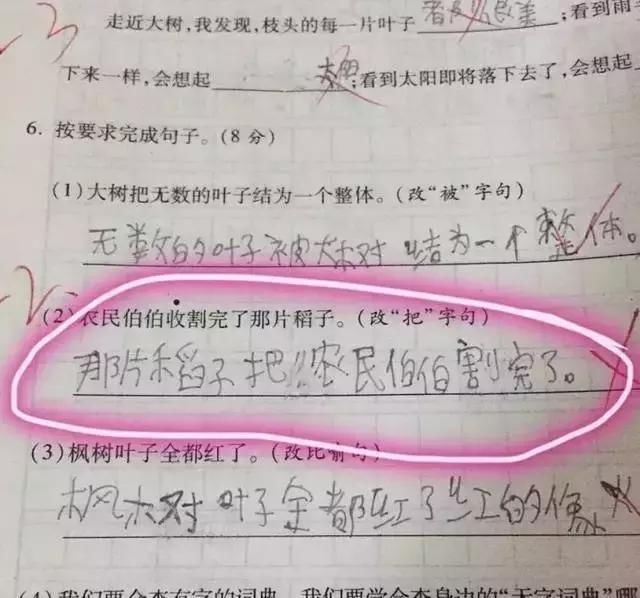 3
走近大树,我发现,枝头的每一片叶子 ;看到雨
下来一样,会想起 太阳 ;看到太阳即将落下去了,会想起
6. 按要求完成句子。(8 分)
(1)大树把无数的叶子结为一个整体。(改“被”字句)
无数的叶子被大树结为一个整体。
-2
(2)农民伯伯收割完了那片稻子。(改“把”字句)
那片稻子把农民伯伯割完了。
(3)枫树叶子全都红了。(改比喻句)
枫树叶子全都红了红的像
(4)我们要会查有字的词典,我们要学会查身边的“无字词典”